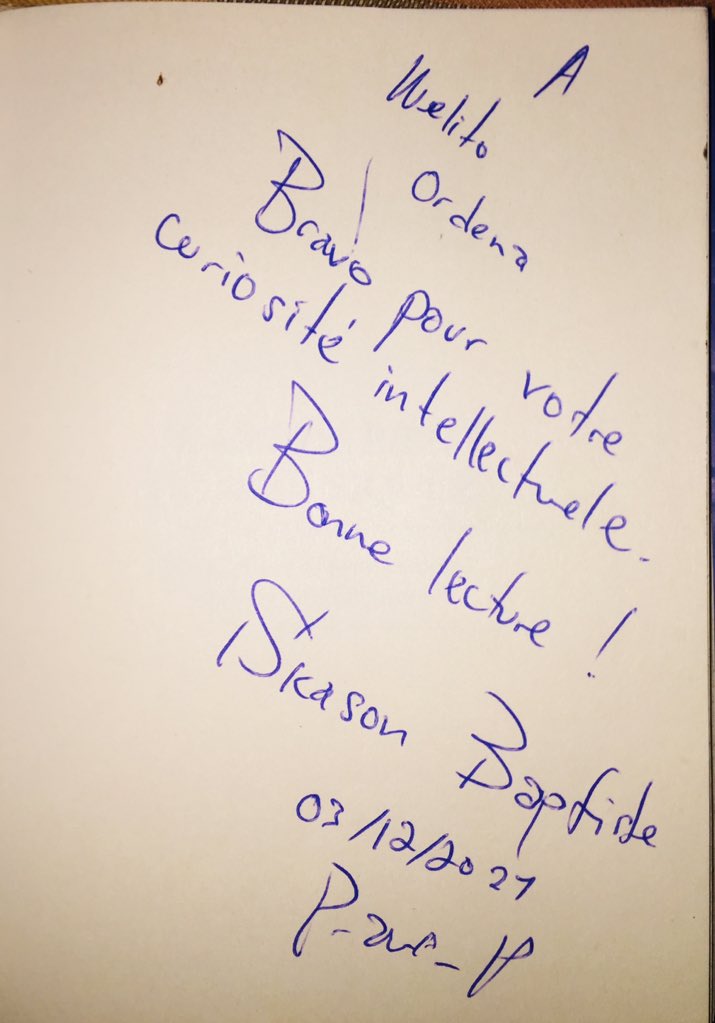 A
Ordena
Bravo pour votre
curiosité intellectuele.
Bonne lecture !
Skason Baptiste
03/12/2021
P-au-P